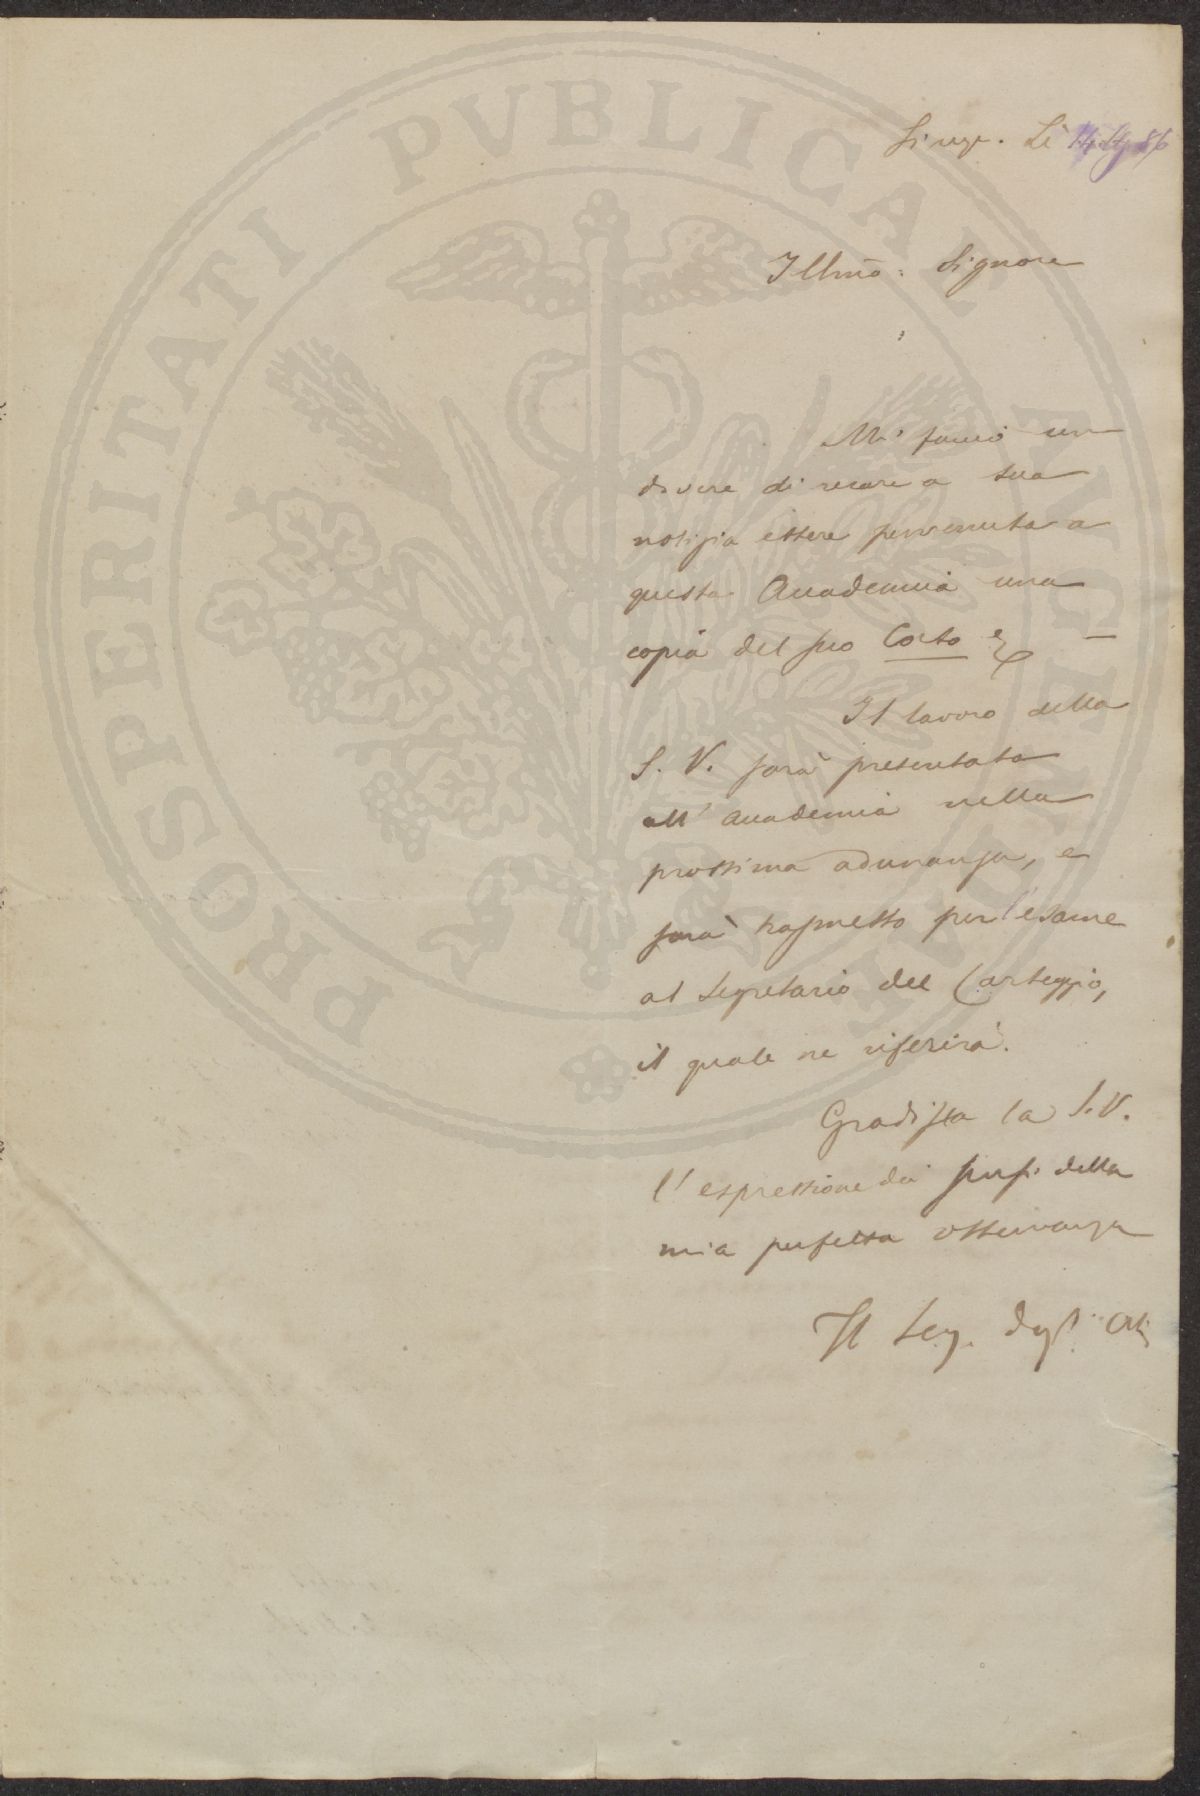 PROSPERITATI PVBLICAE AVGENDAE
Firenze. Lì
Illmo: Signore
Mi faccio un
dovere di recare a sua
notizia essere pervenuta a
questa Accademia una
copia del suo Corso &
Il lavoro della
S. V. sarà presentato
all' Accademia nella
prossima adunanza, e
sarà trasmesso per l'esame
al Segretario del Carteggio,
il quale ne riferirà.
Gradisca la S.V.
l'espressione dei sensi della
mia perfetta osservanza
Il Seg. degli Atti